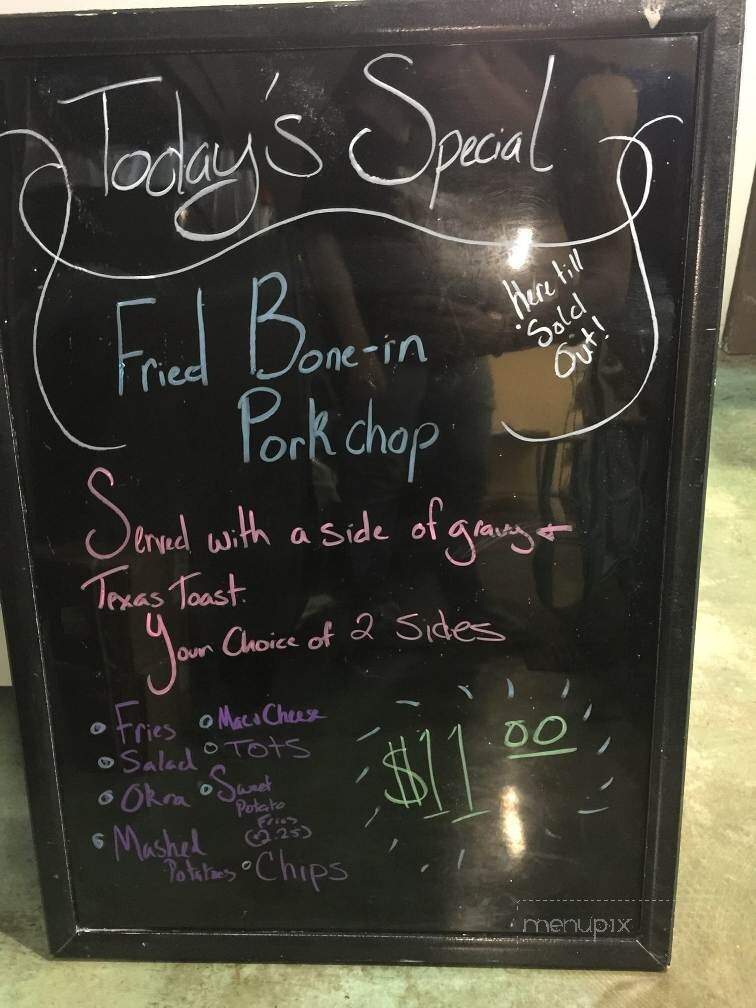 Today's Special
Here till
Sold
Out!
Fried Bone-in
Pork chop
Served with a side of gravy +
Texas Toast.
Your Choice of 2 Sides
Fries
Mac & Cheese
Salad
TOTS
Okra
Sweet
Potato
Fries
(+2.25)
Mashed
Potatoes
Chips
$11 00
menupix